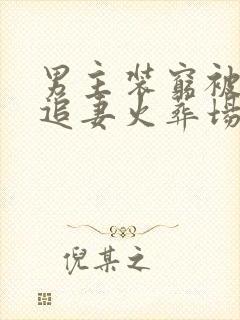 男主装窮被
追妻火葬場
倪某之